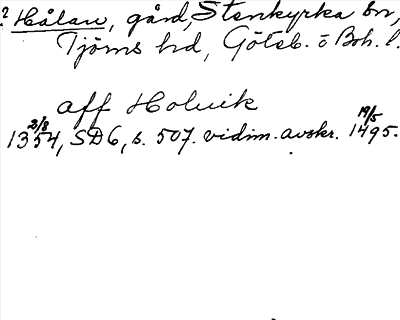 ? Hålan, gård, Stenkyrka sn,
Tjörns hd, Göteb. o Boh. l.
aff Holuik
1354 2/8, SD6, s. 507. vidim. avskr. 1495 19/5.